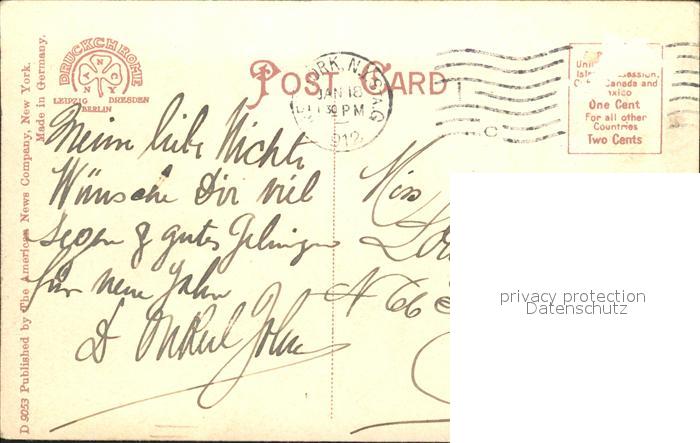 D 9053 Published by The American News Company, New York.
Made in Germany.
DRUCKCHROME
ANCNY
LEIPZIG DRESDEN
BERLIN
POST CARD
YORK, N.Y. STA. G
JAN 18
30 PM
1912
Uni
Isl session,
C Canada and
xico
One Cent
For all other
Countries
Two Cents
Meine liebe Nichte
Wünsche Dir viel
segen & gutes Gelingen
für neue Jahr
D Onkel John
Miss
privacy protection
Datenschutz